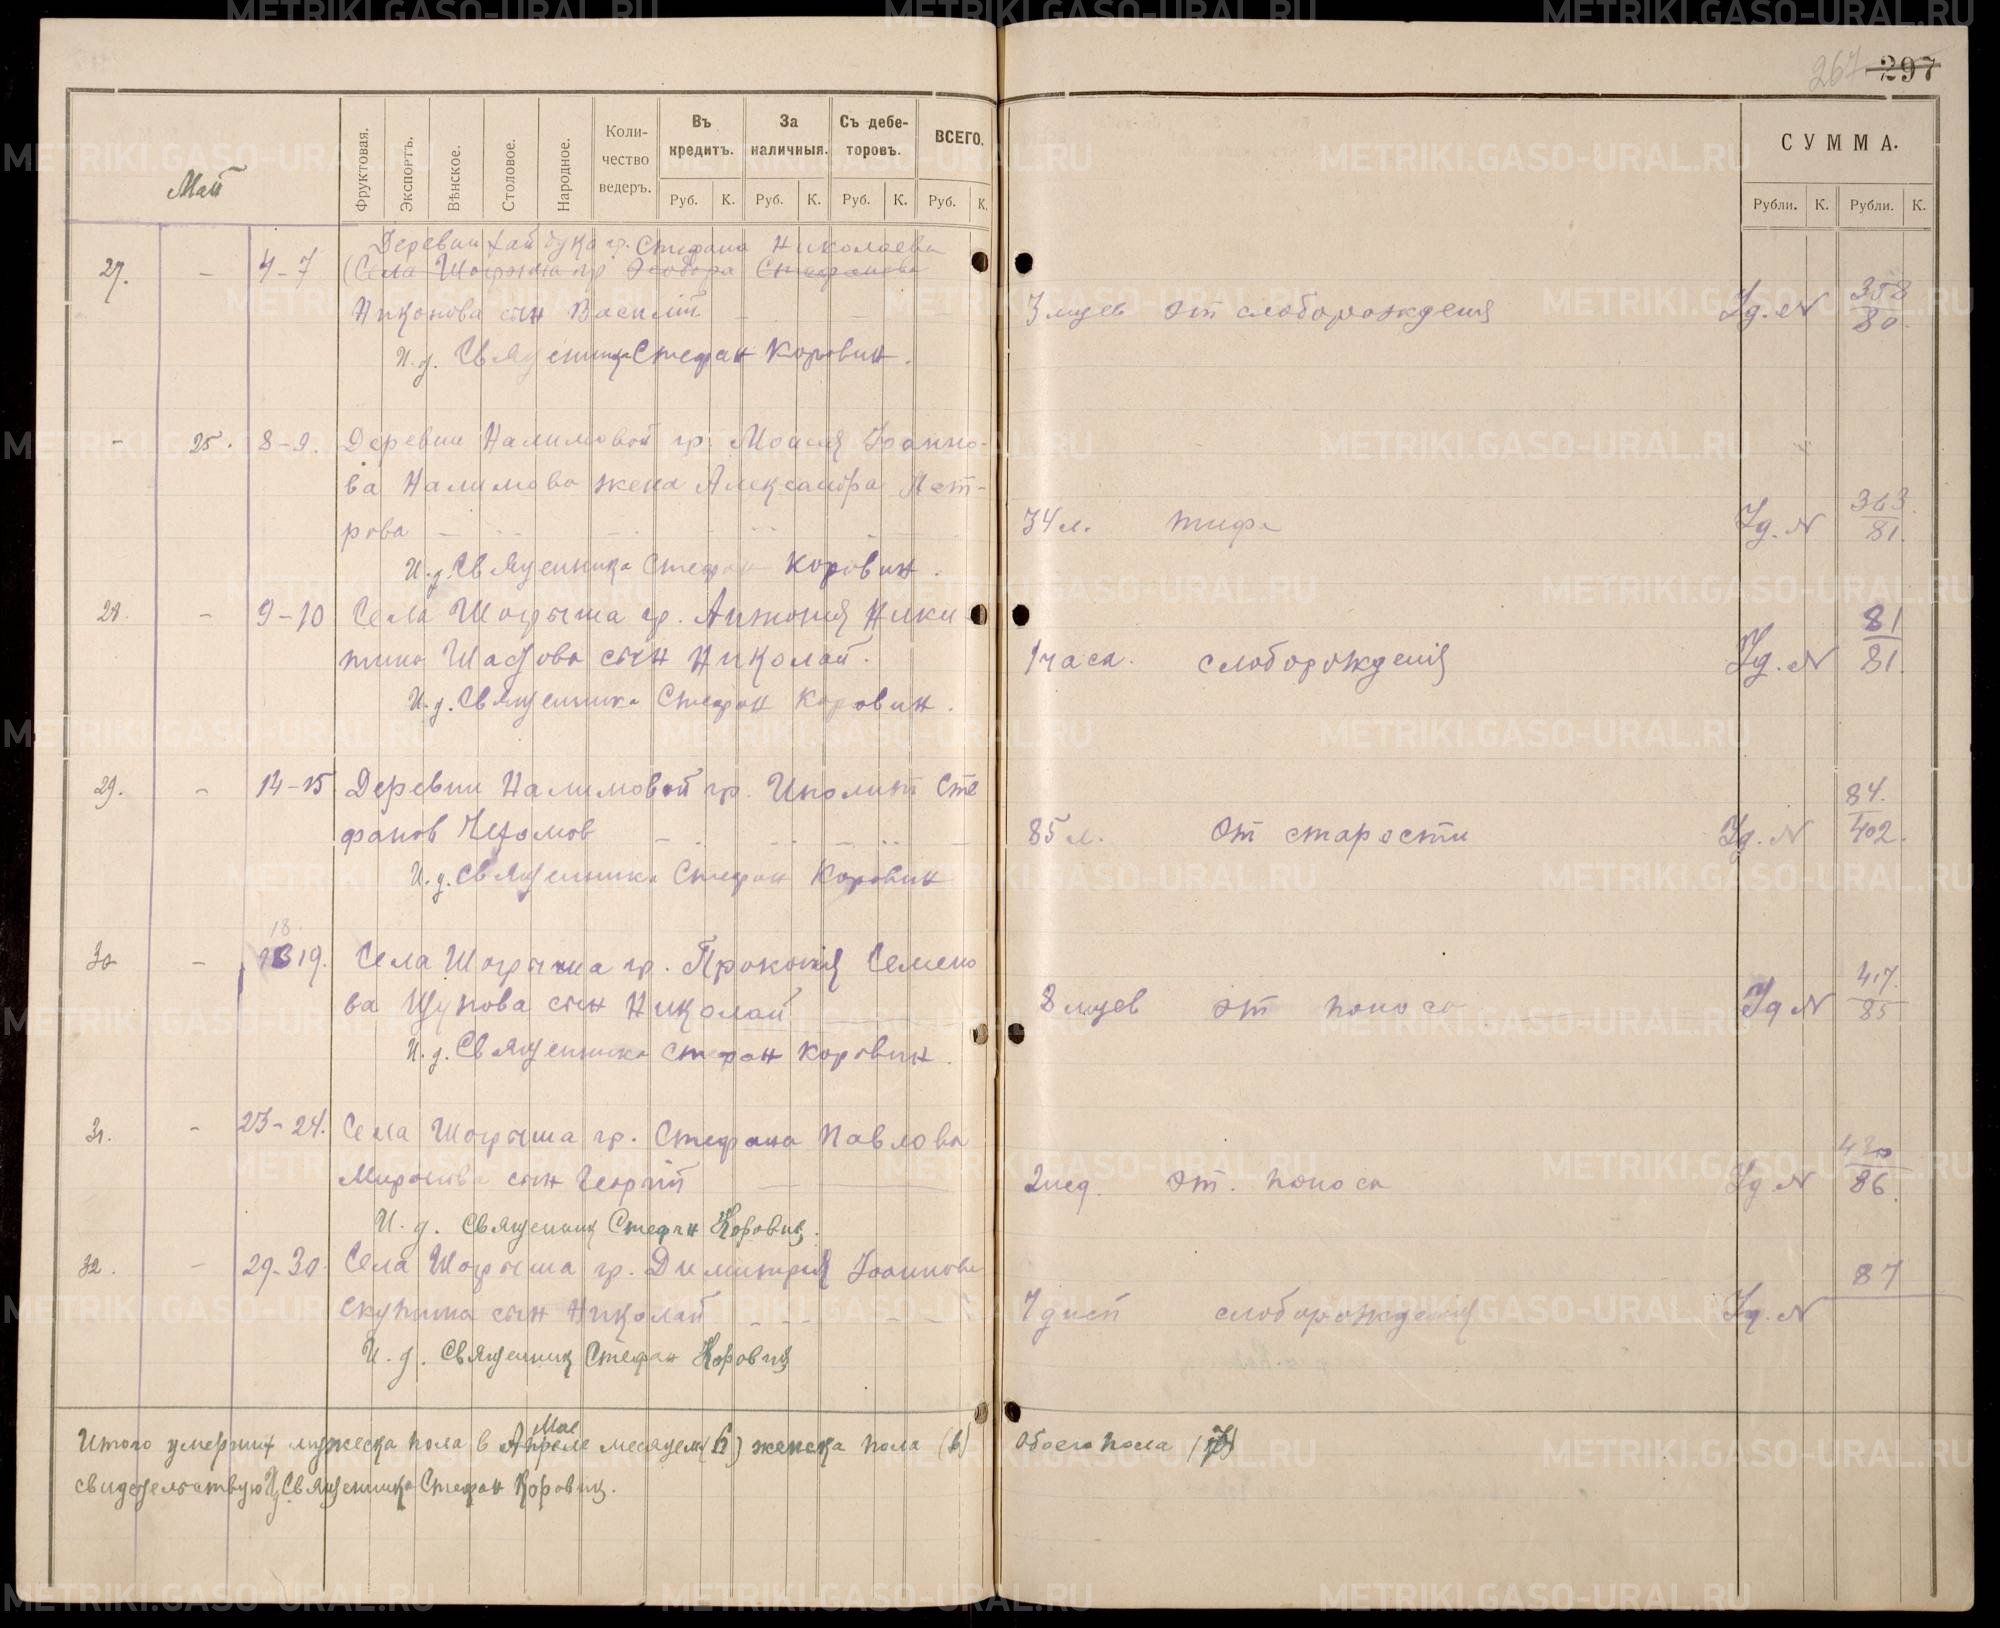 267 297
Май
Фруктовая.
Экспортъ.
Вѣнское.
Столовое.
Народное.
Количество ведеръ.
Въ кредитъ.
За наличныя.
Съ дебеторовъ.
ВСЕГО.
Руб. К. Руб. К. Руб. К. Руб. К.
СУММА.
Рубли. К. Рубли. К.
Деревни гр. Стефана Николаева
27. - 4-7 (Села Шогрыша гр. Феодора Стефанова
Никонова сын Василій 3 мцев от слаборождения Уд. № 358
80.
И.д. Священника Стефан Коровин.
- 25. 8-9. Деревни Налимовой гр. Моисея Іоанно-
ва Налимова жена Александра Пет-
рова 34 л. тифа Уд. № 363.
81.
И.д. Священника Стефан Коровин.
28. - 9-10 Села Шогрыша гр. Антония Ники
тина сын Николай. 1 часа. слаборождения Уд. № 81
81.
И.д. Священника Стефан Коровин.
29. - 14-15 Деревни Налимовой гр. Иполит Сте
фанов 85 л. От старости Уд. № 84.
402.
И.д. Священника Стефан Коровин
18
30 - 19. Села Шогрыша гр. Прокопия Семено
ва Щупова сын Николай 8 мцев от поноса Уд № 417.
85
И.д. Священника Стефан Коровин.
31. - 23-24. Села Шогрыша гр. Стефана Павлова
Миронова сын Георгий 2 нед. от. поноса Уд №
86.
И.д. Священник Стефан Коровин.
32. - 29-30 Села Шогрыша гр. Димитрия Іоаннова
Скутина сын Николай 7 дней слаборождения Уд. № 87
И.д. Священник Стефан Коровин
Мае
Итого умерших мужеска пола в Апреле месяцем (6) женска пола Обоего пола
свидетельствую И.д. Священника Стефан Коровин.
METRIKI.GASO-URAL.RU